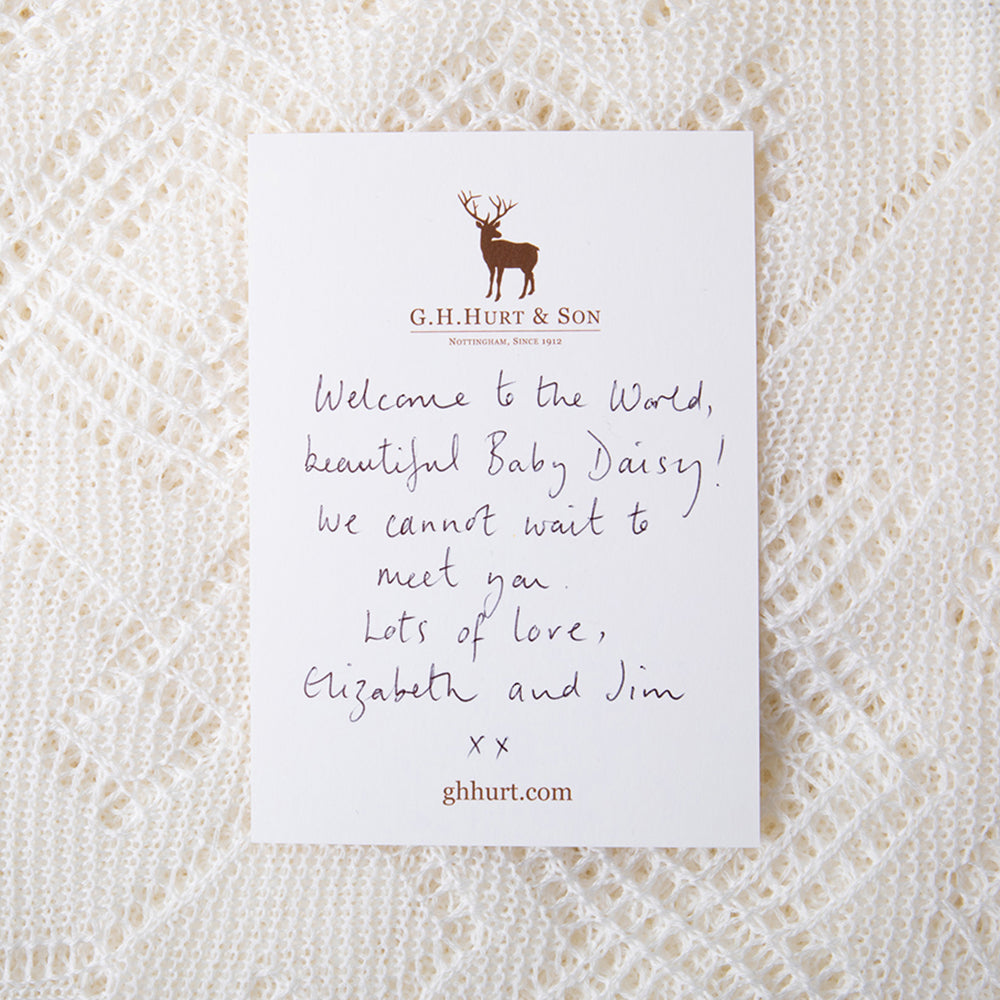 G.H.Hurt & Son
Nottingham, Since 1912
Welcome to the World,
beautiful Baby Daisy!
We cannot wait to
meet you.
Lots of love,
Elizabeth and Jim
xx
ghhurt.com